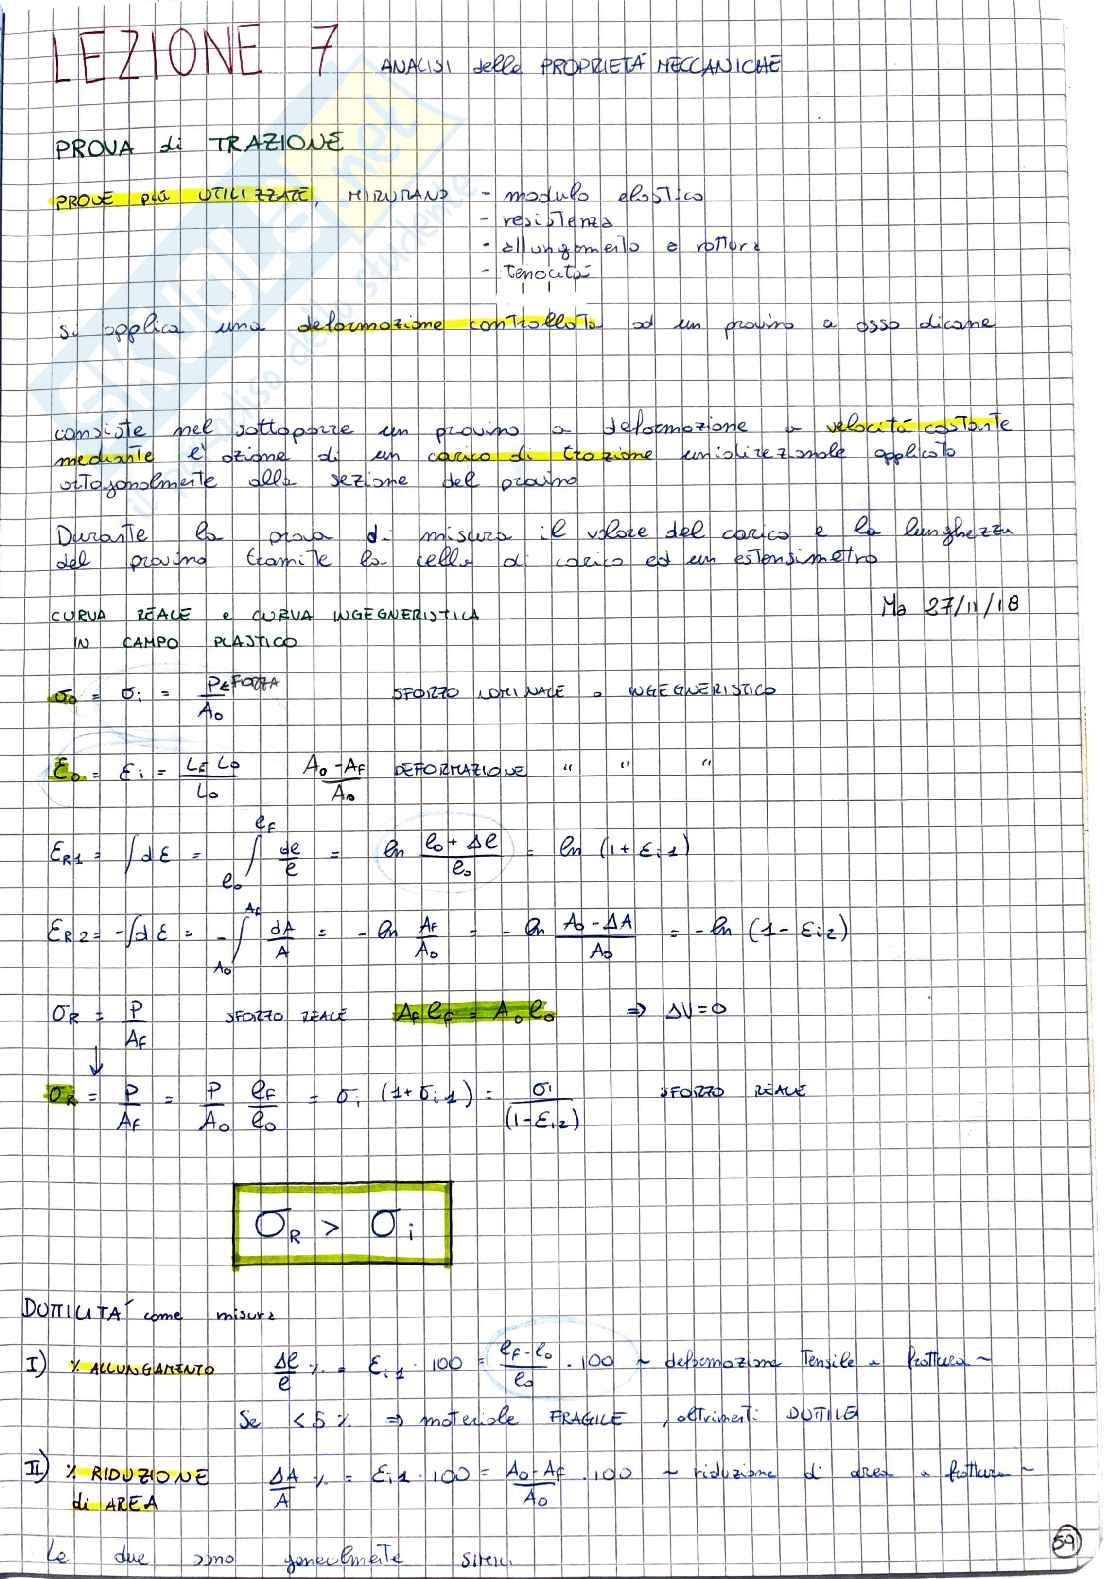 LEZIONE 7 ANALISI delle PROPRIETÀ MECCANICHE
PROVA di TRAZIONE
PROVE più UTILIZZATE, MISURANO - modulo elastico
- resistenza
- allungamento a rottura
- tenacità
Si applica una deformazione controllata ad un provino a osso di cane
consiste nel sottoporre un provino a deformazione a velocità costante
mediante l'azione di un carico di trazione unidirezionale applicato
ortogonalmente alla sezione del provino
Durante la prova si misura il valore del carico e la lunghezza
del provino tramite la cella di carico ed un estensimetro
CURVA REALE e CURVA INGEGNERISTICA Ma 27/11/18
IN CAMPO PLASTICO
σ₀ = σi = P←FORZA / A₀ SFORZO NOMINALE o INGEGNERISTICO
ε₀ = εi = LF L₀ / L₀ A₀-AF / A₀ DEFORMAZIONE " " "
εR1 = ∫dε = ∫ℓ₀^ℓF dℓ/ℓ = ln (ℓ₀+Δℓ)/ℓ₀ = ln (1+εi1)
εR2 = -∫dε = -∫A₀^AF dA/A = -ln AF/A₀ = -ln (A₀-ΔA)/A₀ = -ln (1-εi2)
σR = P/AF SFORZO REALE AFℓF = A₀ℓ₀ ⇒ ΔV=0
↓
σR = P/AF = P/A₀ ℓF/ℓ₀ = σi (1+σi1) = σi/(1-εi2) SFORZO REALE
σR > σi
DUTTILITÀ come misura
I) % ALLUNGAMENTO Δℓ/ℓ % = εi1 · 100 = (ℓF-ℓ₀)/ℓ₀ · 100 ~ deformazione Tensile a frattura ~
Se < 5 % ⇒ materiale FRAGILE, altrimenti DUTTILE
II) % RIDUZIONE ΔA/A % = εi1 · 100 = (A₀-AF)/A₀ · 100 ~ riduzione di area a frattura ~
di AREA
Le due sono generalmente
59